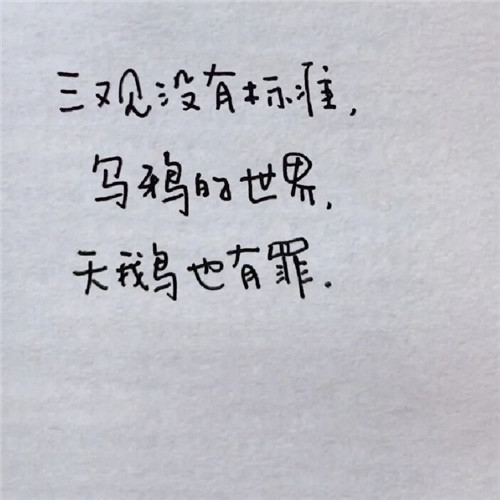 三观没有标准,
乌鸦的世界,
天鹅也有罪.